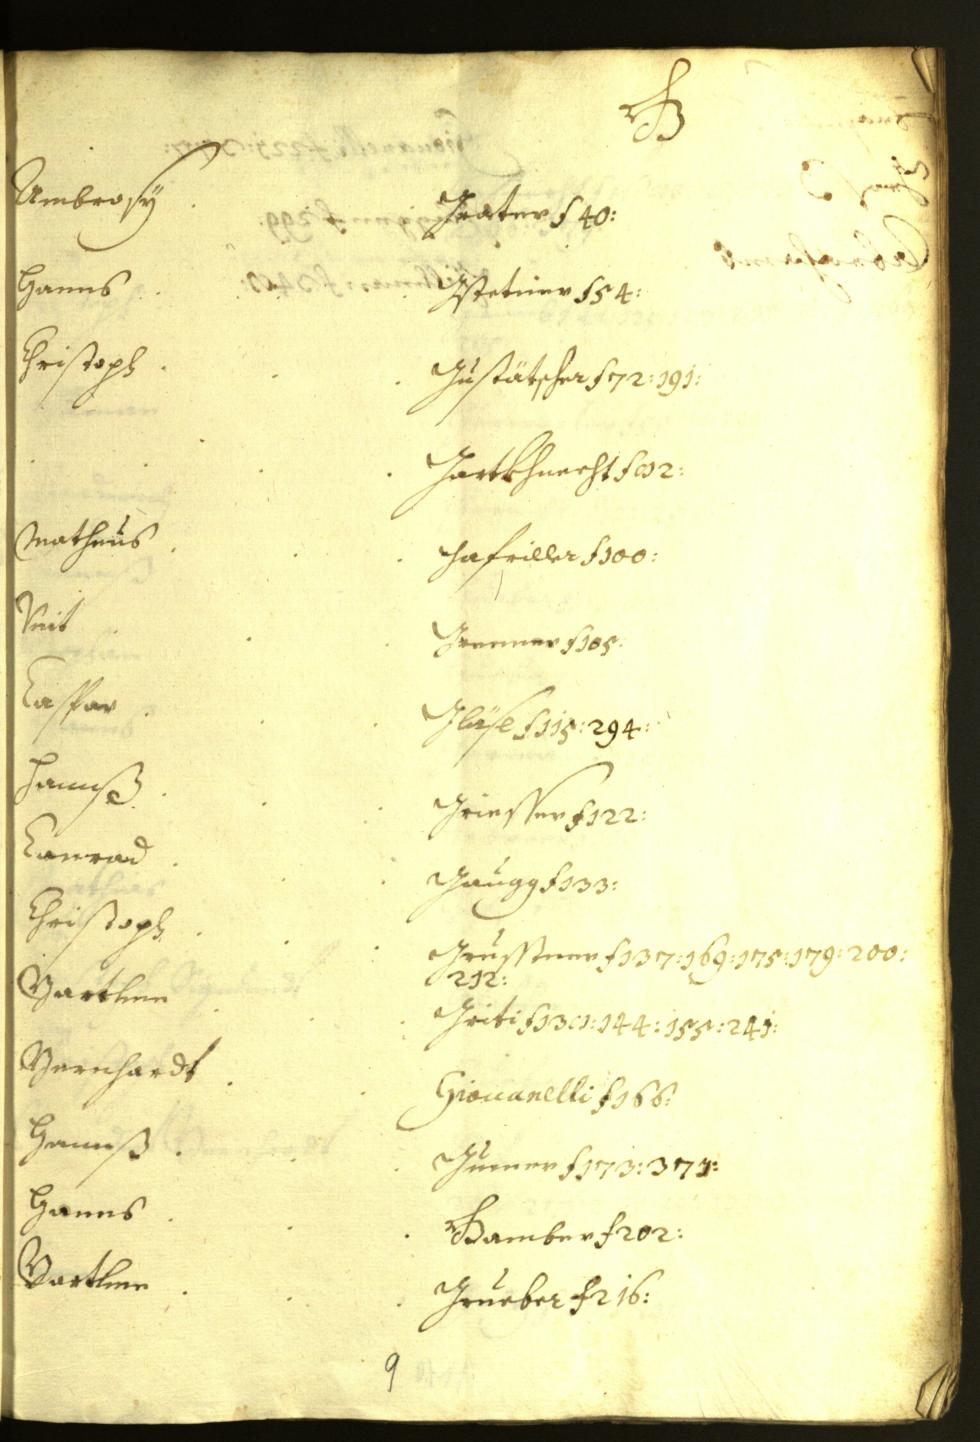 G
Ambrosÿ . Grater f 40:
Hanns . . . Gstetner f 54:
Christoph . . . Gustätscher f 72: 191:
. . . . Garttkhnecht f 92:
Matheüs . . . Gafriller f 100:
Veit . . . Gremer f 105:
Caspar . . . Gläse f 115: 294:
Hannß . . . Griesser f 122:
Conrad . . . Gaugg f 133:
Christoph . . . Grusstner f 137: 169: 175: 179: 200:
212:
Bartlme . . . Griti f 139: 144: 155: 241:
Bernhardt . . Giouanelli f 166:
Hannß . . . Gumer f 173: 371:
Hanns . . . Gamber f 202:
Bartlme . . . Grueber f 216:
9